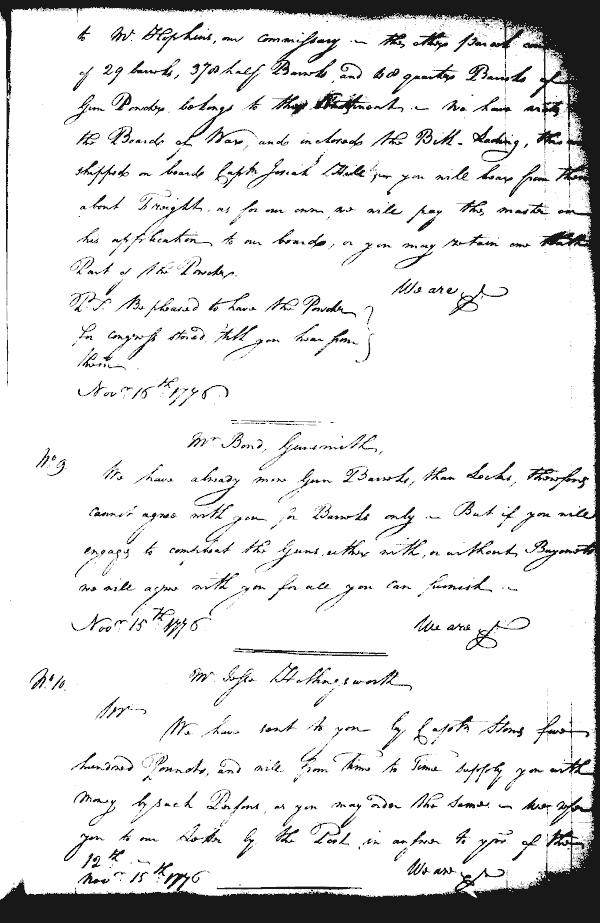 to Mr. Hopkins, our commissary — the other parcel
of 29 barrels, 378 half Barrels, and 68 quarter Barrels of
Gun Powder belongs to the Continent — We have wrote
the Board of War, and inclosed the Bill Lading,
shipped on board Captn. Josiah Hill you will hear from them
about Freight. as for our own, we will pay the master on
his application to our board, or you may retain one
Part of the Powder.
We are &c
P.S. Be pleased to have the Powder
for congress stored till you hear from
them
Novr. 16th 1776
No. 9
Mr Bond, Gunsmith,
We have already more Gun Barrels, than Locks, therefore
cannot agree with you for Barrels only — But if you will
engage to compleat the Guns, either with, or without Bayonets
we will agree with you for all you can furnish —
Novr. 15th 1776
We are &c
No. 10.
Mr. Jesse Hollingsworth
Sir
We have sent to you by Captn Stone five
hundred Pounds, and will from Time to Time supply you with
Money by such Persons, as you may order the same — we refer
you to our Letter by the Post, in answer to yrs. of the
12th —
Novr. 15th 1776
We are &c